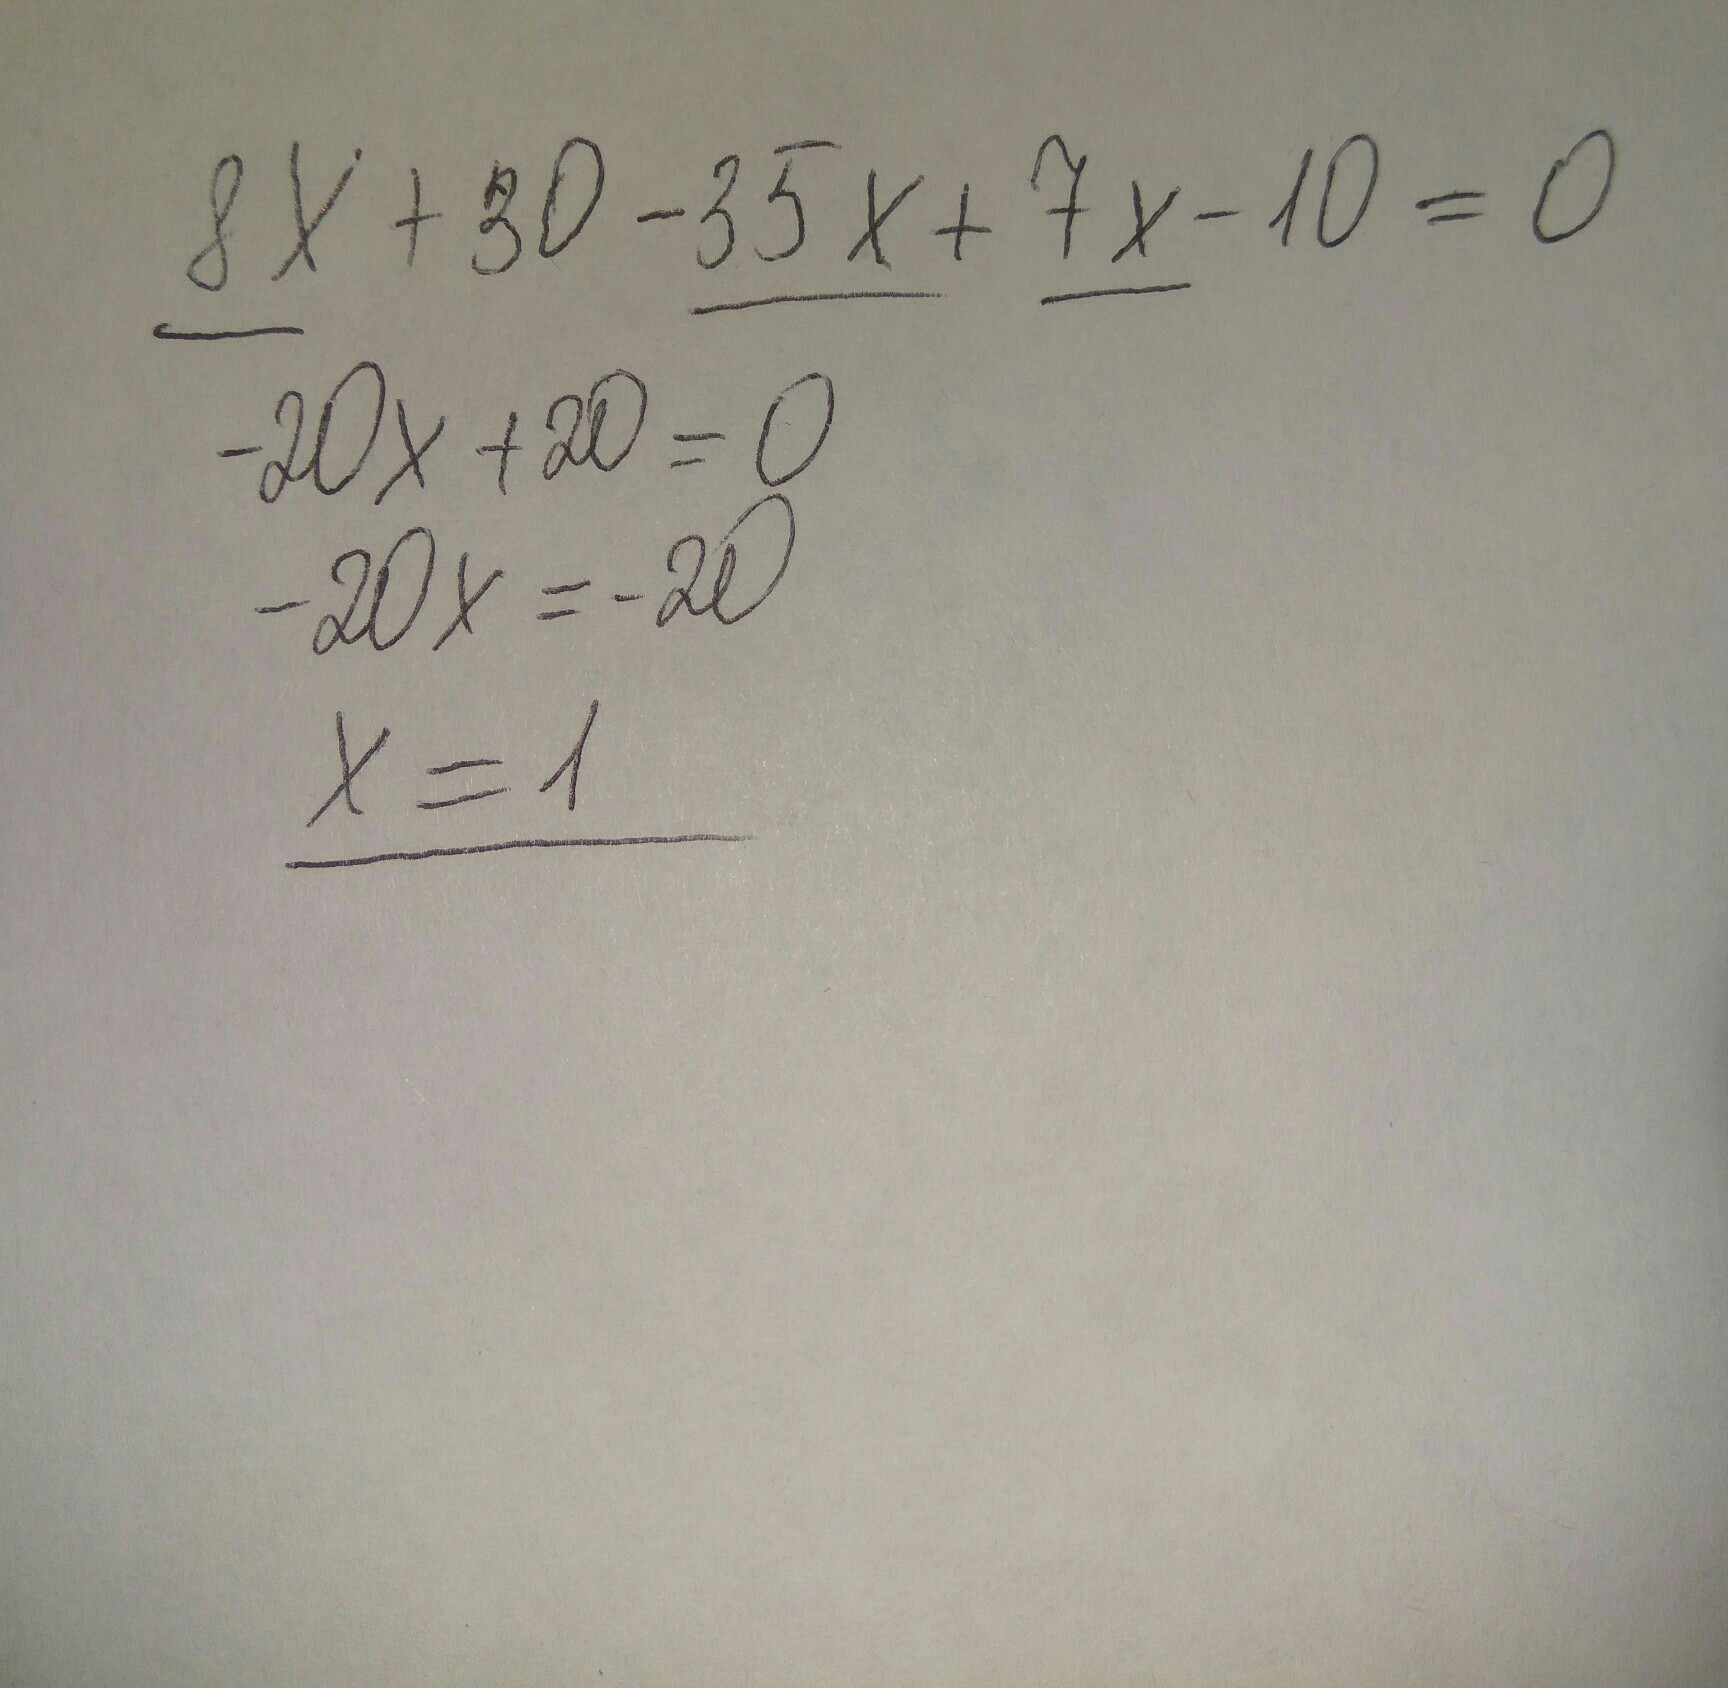 8x + 30 - 35x + 7x - 10 = 0
-20x + 20 = 0
-20x = -20
x = 1